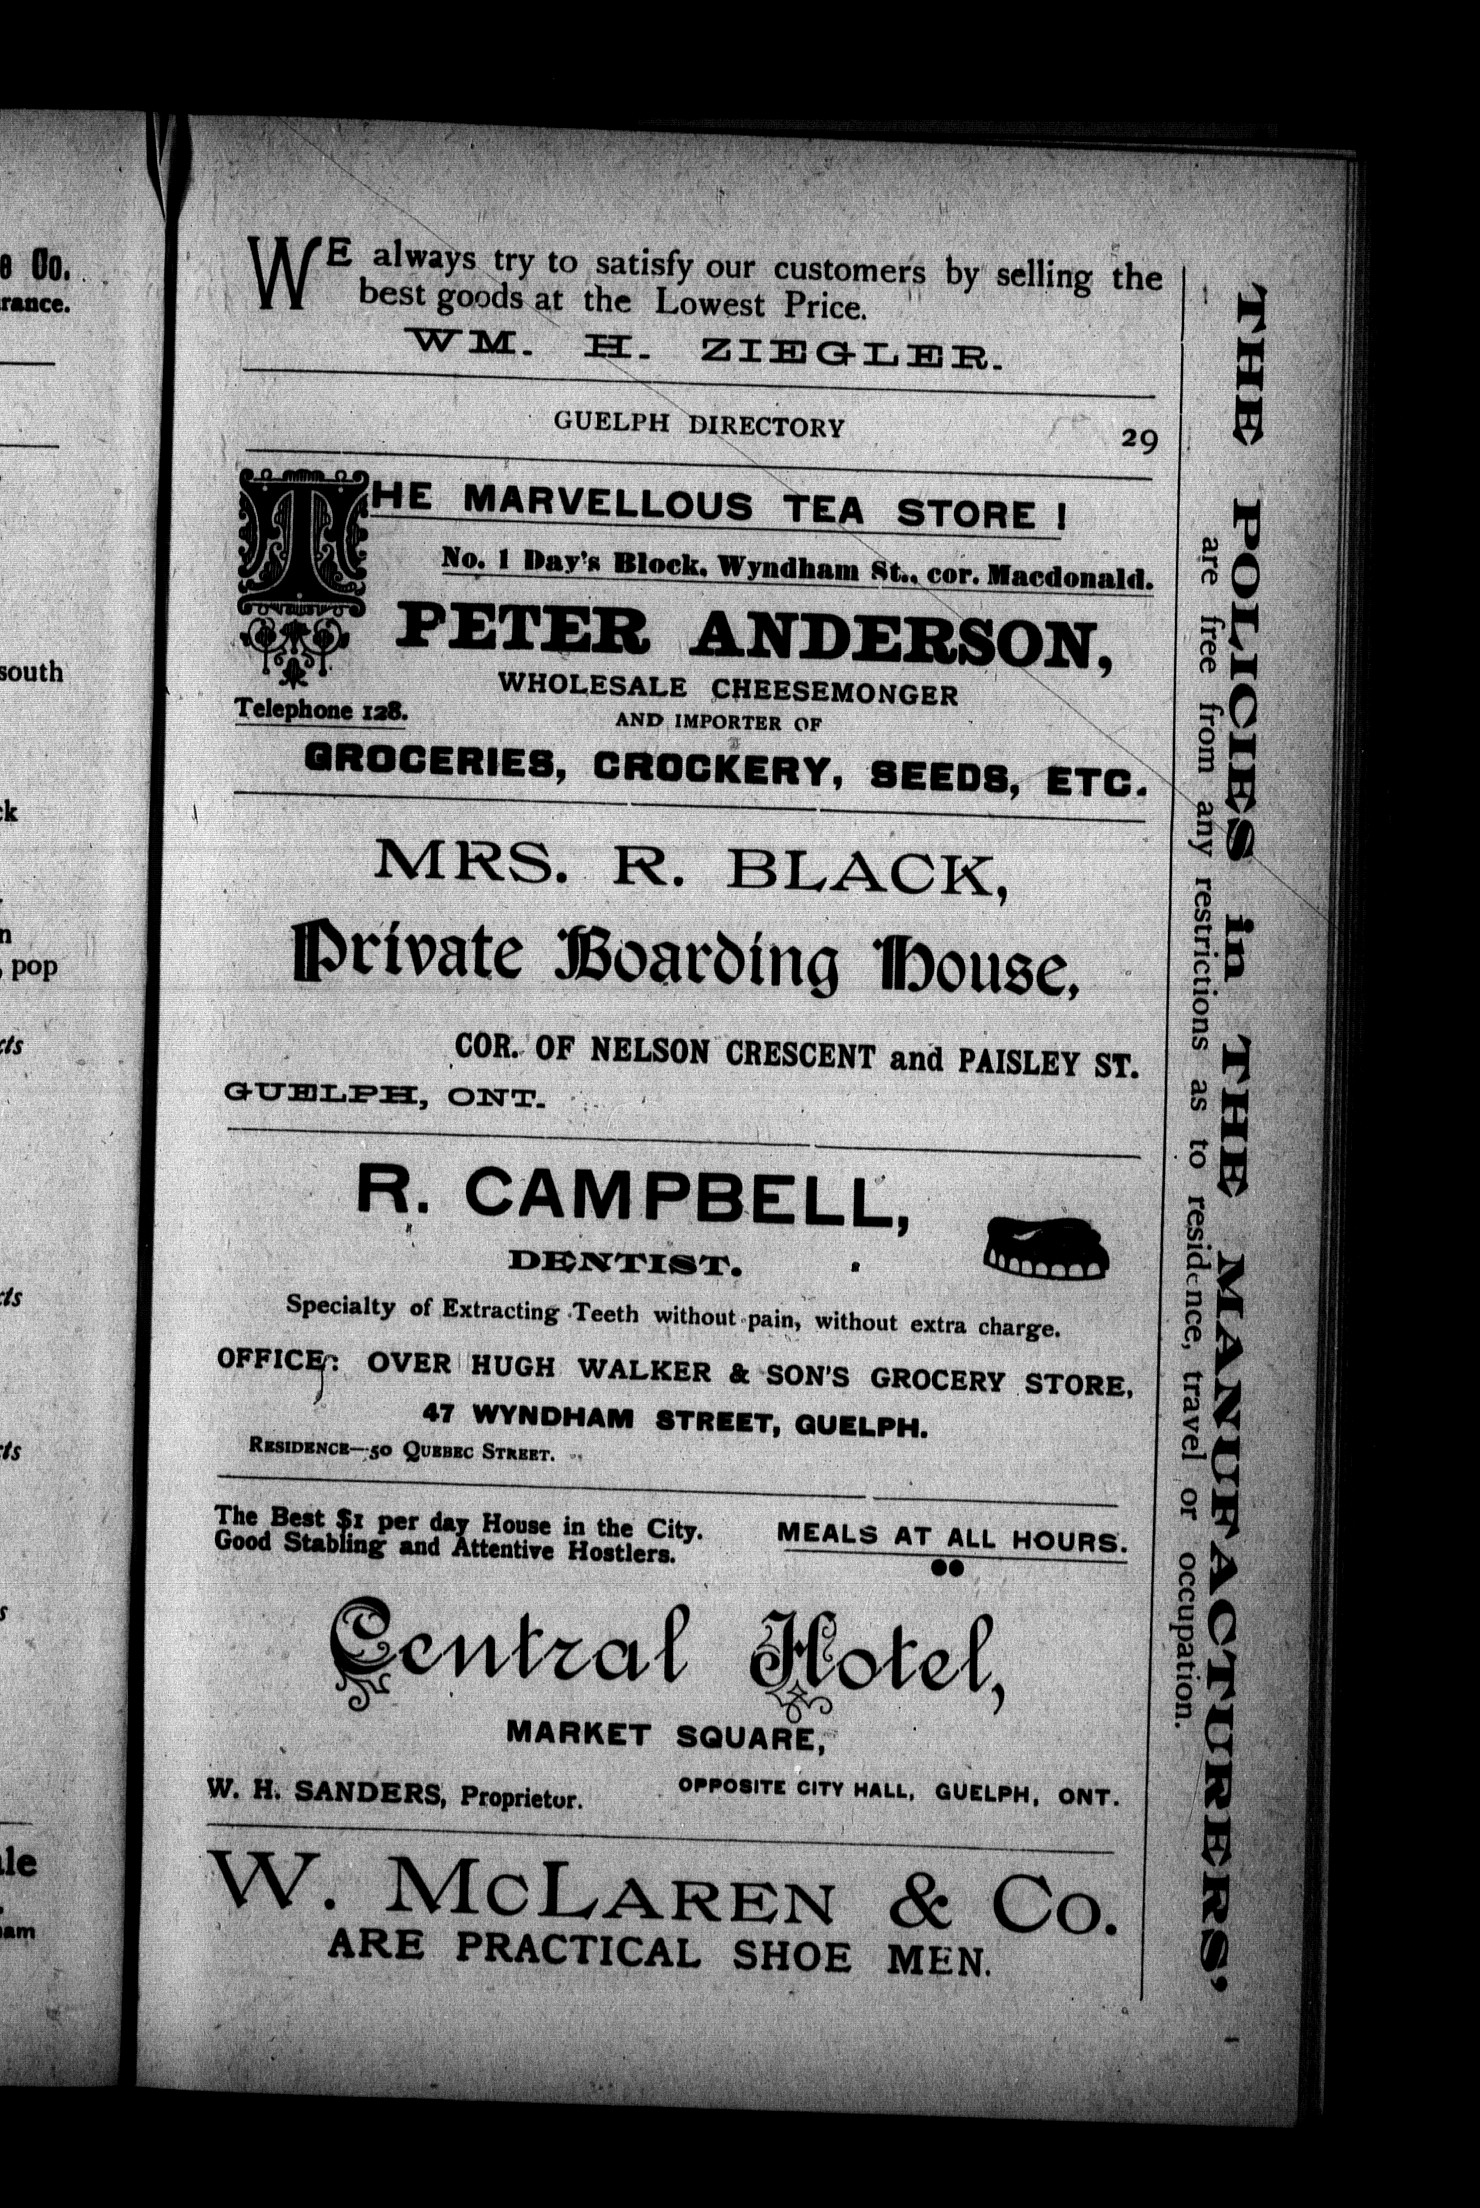 WE always try to satisfy our customers by selling the
best goods at the Lowest Price.
WM. H. ZIEGLER.
GUELPH DIRECTORY 29
THE MARVELLOUS TEA STORE !
No. 1 Day's Block, Wyndham St., cor. Macdonald.
PETER ANDERSON,
WHOLESALE CHEESEMONGER
Telephone 128.
AND IMPORTER OF
GROCERIES, CROCKERY, SEEDS, ETC.
MRS. R. BLACK,
Private Boarding House,
COR. OF NELSON CRESCENT and PAISLEY ST.
GUELPH, ONT.
R. CAMPBELL,
DENTIST.
Specialty of Extracting Teeth without pain, without extra charge.
OFFICE: OVER HUGH WALKER & SON'S GROCERY STORE,
47 WYNDHAM STREET, GUELPH.
RESIDENCE—50 QUEBEC STREET.
The Best $1 per day House in the City.
Good Stabling and Attentive Hostlers.
MEALS AT ALL HOURS.
Central Hotel,
MARKET SQUARE,
W. H. SANDERS, Proprietor.
OPPOSITE CITY HALL, GUELPH, ONT.
W. MCLAREN & Co.
ARE PRACTICAL SHOE MEN.
THE POLICIES in THE MANUFACTURERS'
are free from any restrictions as to residence, travel or occupation.
Co.
south
pop